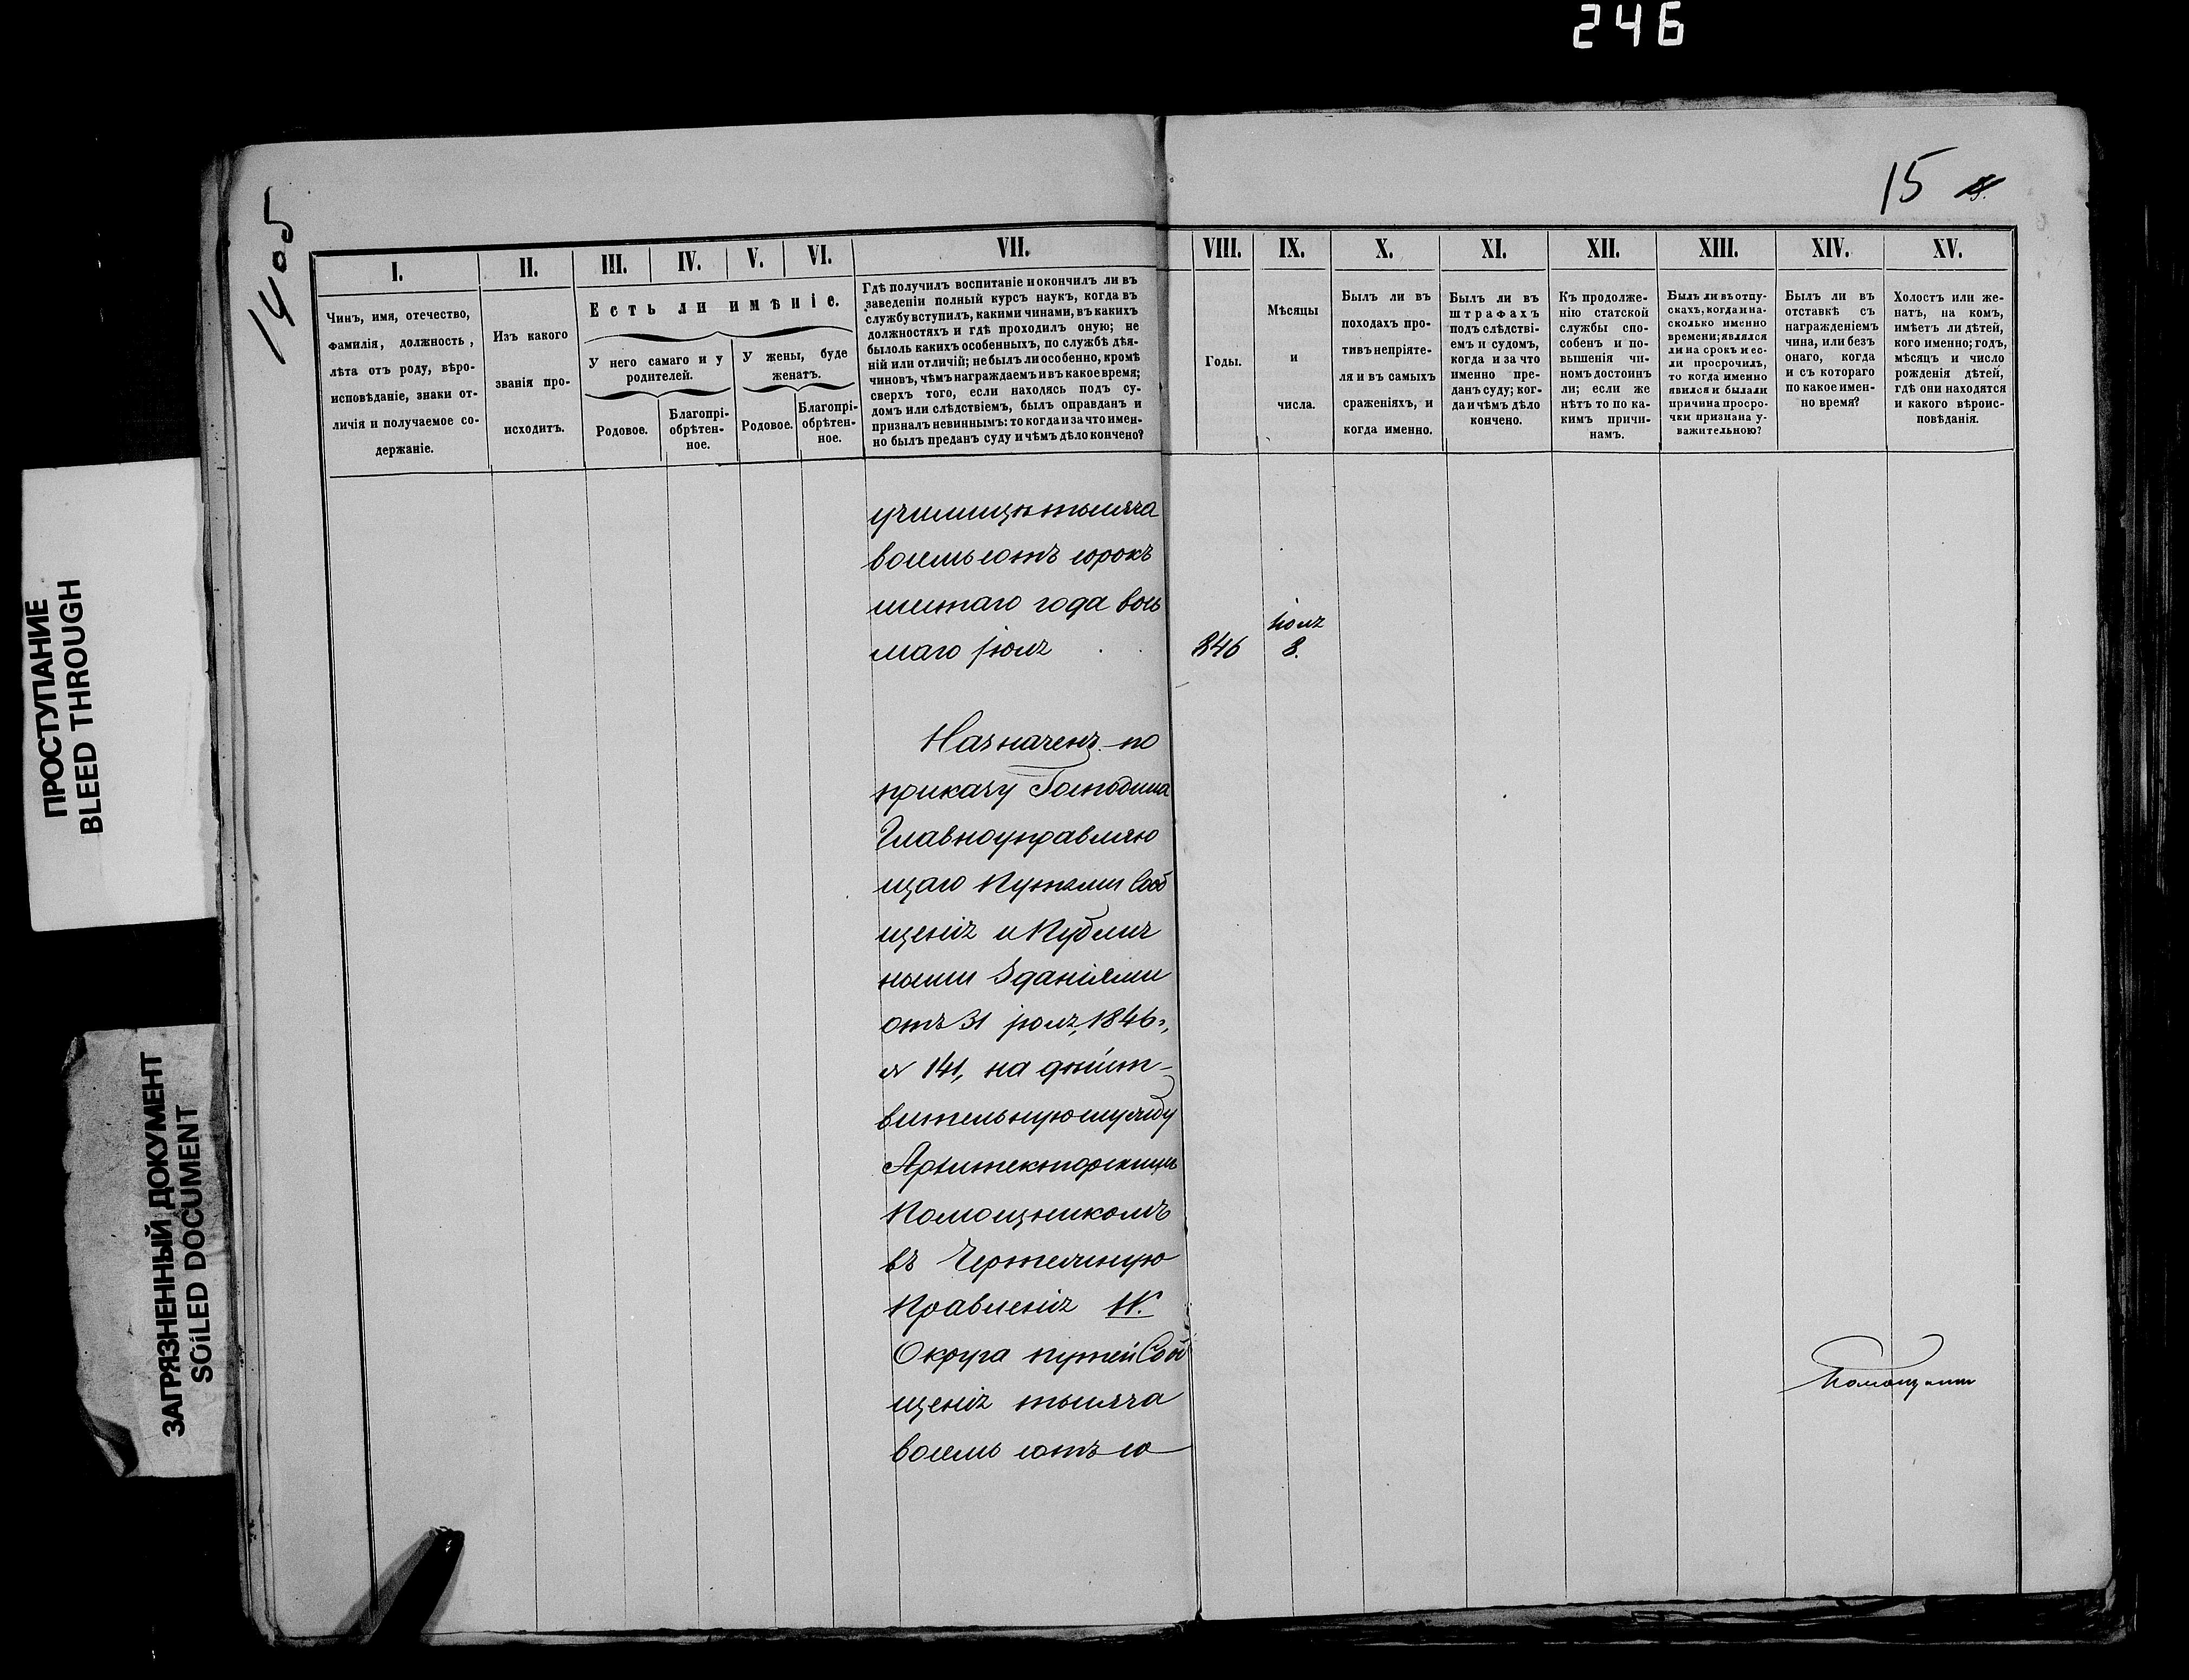 246
15
14 об
ПРОСТУПАНИЕ
BLEED THROUGH
ЗАГРЯЗНЕННЫЙ ДОКУМЕНТ
SOILED DOCUMENT
I.
Чинъ, имя, отечество,
фамилія, должность,
лѣта отъ роду, вѣро-
исповѣданіе, знаки от-
личія и получаемое со-
держаніе.
II.
Изъ какого
званія про-
исходитъ.
III. IV. V. VI.
Есть ли имѣніе.
У него самаго и у
родителей.
У жены, буде
женатъ.
Родовое.
Благопрі-
обрѣтен-
ное.
Родовое.
Благопрі-
обрѣтен-
ное.
VII.
Гдѣ получилъ воспитаніе и окончилъ ли въ
заведеніи полный курсъ наукъ, когда въ
службу вступилъ, какими чинами, въ какихъ
должностяхъ и гдѣ проходилъ оную; не
было ль какихъ особенныхъ, по службѣ дѣя-
ній или отличій; не былъ ли особенно, кромѣ
чиновъ, чѣмъ награждаемъ и въ какое время;
сверхъ того, если находясь подъ су-
домъ или слѣдствіемъ, былъ оправданъ и
призналъ невиннымъ: то когда и за что имен-
но былъ преданъ суду и чѣмъ дѣло кончено?
VIII.
Годы.
IX.
Мѣсяцы
и
числа.
X.
Былъ ли въ
походахъ про-
тивъ непріяте-
ля и въ самыхъ
сраженіяхъ, и
когда именно.
XI.
Былъ ли въ
штрафахъ
подъ слѣдстві-
емъ и судомъ,
когда и за что
именно пре-
данъ суду; ког-
да и чѣмъ дѣло
кончено.
XII.
Къ продолже-
нію статской
службы спо-
собенъ и по-
вышенія чи-
номъ достоинъ
ли; если же
нѣтъ то по ка-
кимъ причи-
намъ.
XIII.
Былъ ли въ отпу-
скахъ, когда и на-
сколько именно
времени; являлся
ли на срокъ и ес-
ли просрочилъ,
то когда именно
явился и была ли
причина просро-
чки признана у-
важительною?
XIV.
Былъ ли въ
отставкѣ съ
награжденіемъ
чина, или безъ
онаго, когда
и съ котораго
по какое имен-
но время?
XV.
Холостъ или же-
натъ, на комъ,
имѣетъ ли дѣтей,
кого именно; годъ,
мѣсяцъ и число
рожденія дѣтей,
гдѣ они находятся
и какого вѣроис-
повѣданія.
училищѣ тысяча
восемьсотъ сорокъ
шестаго года вось
маго іюля
846
Іюля
8.
Назначенъ по
приказу Господина
Главноуправляю
щаго Путями Сооб
щенія и Публич
ными Зданіями
отъ 31 іюля, 1846 г.,
№ 141, на дѣйст-
вительную службу
Архитекторскимъ
Помощникомъ
въ Чертежную
Правленія IV.
Округа путей Сооб
щенія тысяча
восемь сотъ со